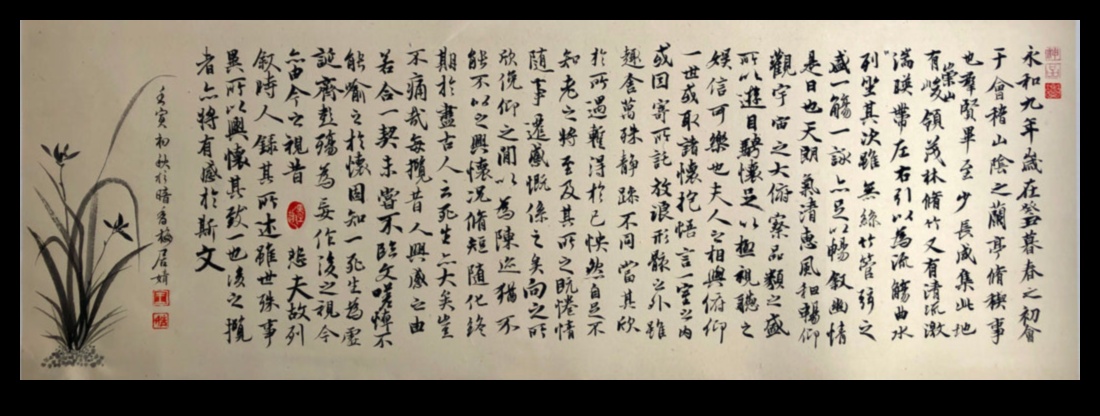 永和九年歲在癸丑暮春之初會
于會稽山陰之蘭亭脩稧事
也群賢畢至少長咸集此地
有崇山峻領茂林脩竹又有清流激
湍暎帶左右引以為流觴曲水
列坐其次雖無絲竹管弦之
盛一觴一詠亦足以暢敘幽情
是日也天朗氣清惠風和暢仰
觀宇宙之大俯察品類之盛
所以遊目騁懷足以極視聽之
娛信可樂也夫人之相與俯仰
一世或取諸懷抱悟言一室之內
或因寄所託放浪形骸之外雖
趣舍萬殊靜躁不同當其欣
於所遇暫得於己怏然自足不
知老之將至及其所之既惓情
隨事遷感慨係之矣向之所
欣俛仰之間以為陳迹猶不
能不以之興懷況脩短隨化終
期於盡古人云死生亦大矣豈
不痛哉每攬昔人興感之由
若合一契未嘗不臨文嗟悼不
能喻之於懷固知一死生為虛
誕齊彭殤為妄作後之視今
亦由今之視昔 悲夫故列
敘時人錄其所述雖世殊事
異所以興懷其致一也後之攬
者亦將有感於斯文
壬寅初秋於暗香梅居婧